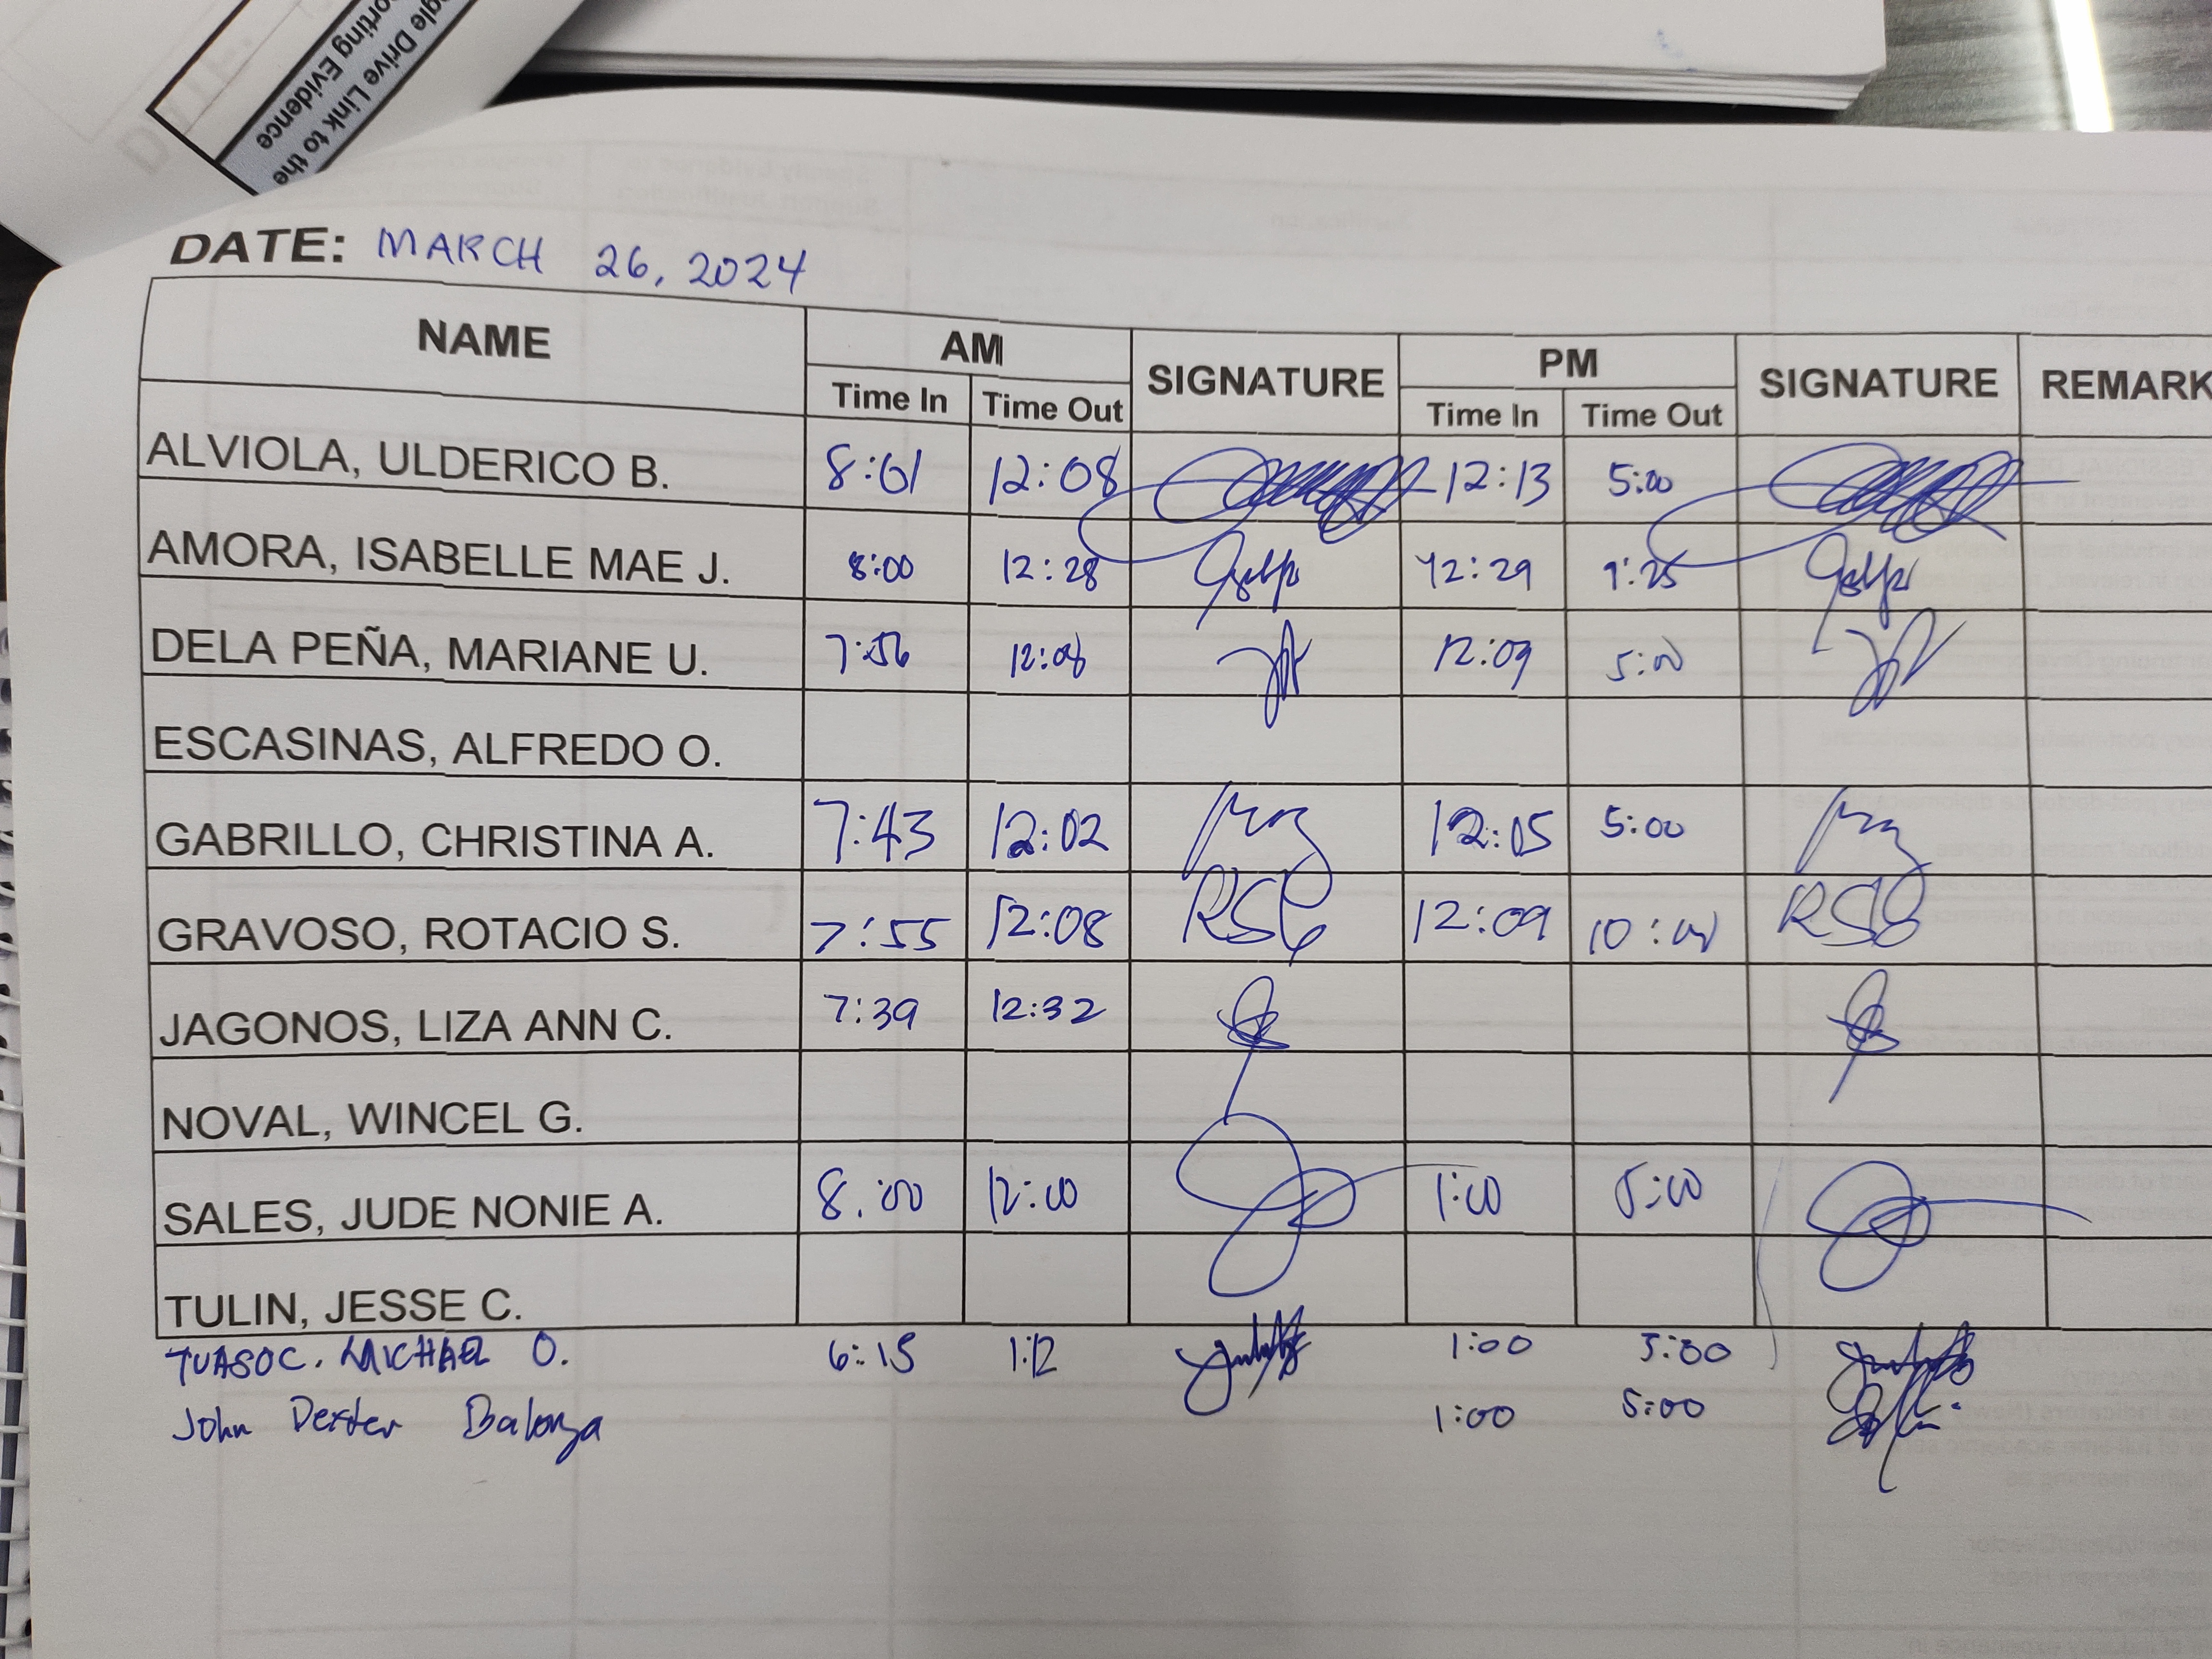 gle Drive Link to the
orting Evidence
DATE: MARCH 26, 2024
NAME AM SIGNATURE PM SIGNATURE REMARK
Time In Time Out Time In Time Out
ALVIOLA, ULDERICO B. 8:01 12:08 12:13 5:00
AMORA, ISABELLE MAE J. 8:00 12:28 12:29 9:25
DELA PEÑA, MARIANE U. 7:56 12:08 12:09 5:00
ESCASINAS, ALFREDO O.
GABRILLO, CHRISTINA A. 7:43 12:02 12:05 5:00
GRAVOSO, ROTACIO S. 7:55 12:08 RSG 12:09 10:00 RSG
JAGONOS, LIZA ANN C. 7:39 12:32
NOVAL, WINCEL G.
SALES, JUDE NONIE A. 8:00 12:00 1:00 5:00
TULIN, JESSE C.
TUASOC. MICHAEL O. 6:15 1:12 1:00 5:00
John Dexter 1:00 5:00